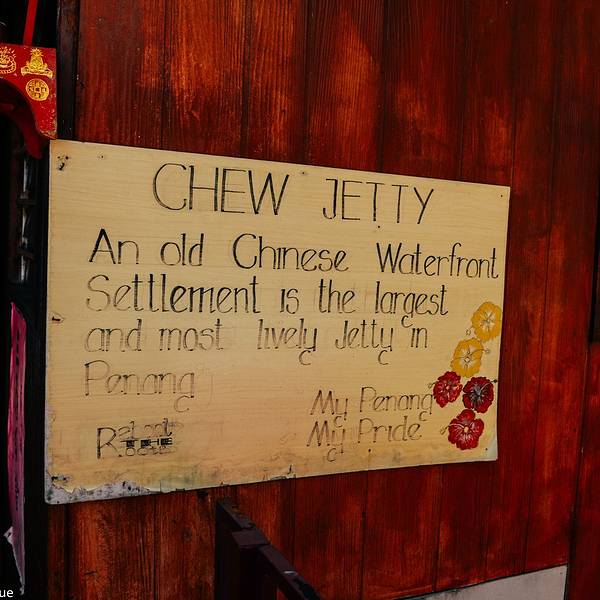 CHEW JETTY
An old Chinese Waterfront
Settlement is the largest
and most lively Jetty in
Penang
My Penang
My Pride
THE
ue